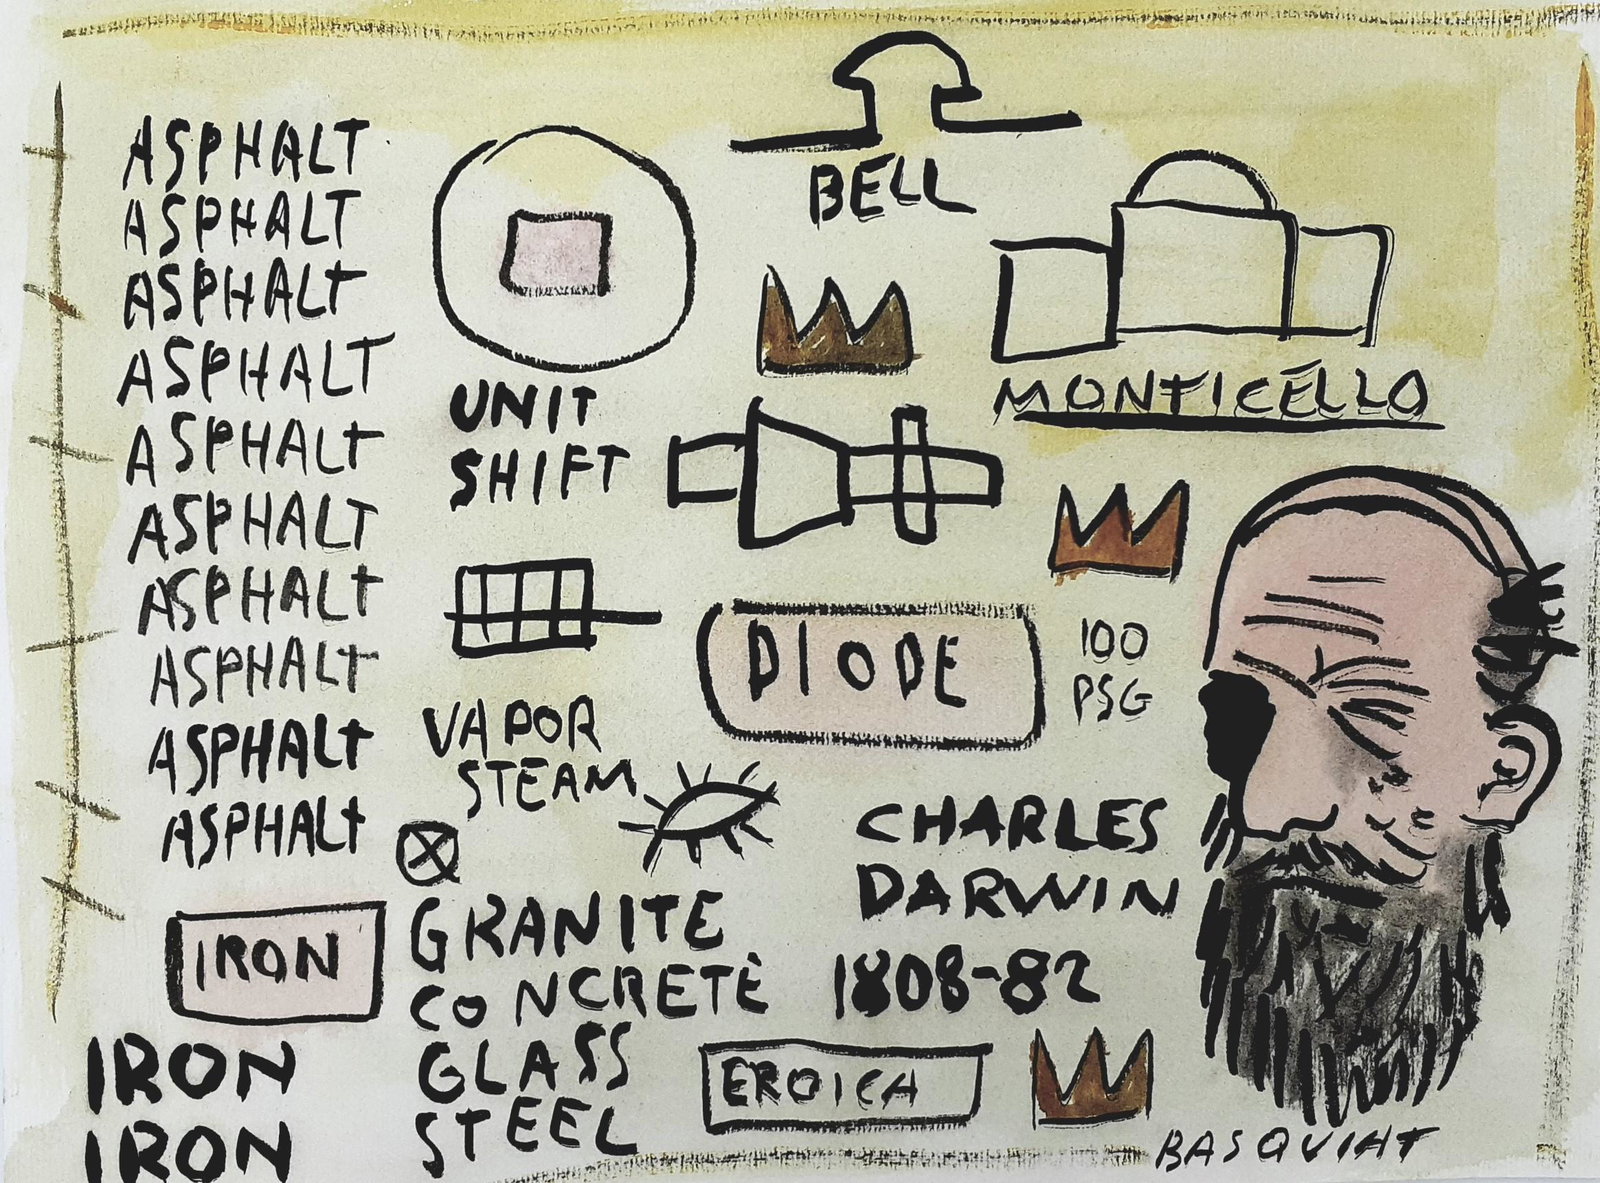 ASPHALT
ASPHALT
ASPHALT
ASPHALT
ASPHALT
ASPHALT
ASPHALT
ASPHALT
ASPHALT
ASPHALT
IRON
IRON
IRON
UNIT
SHIFT
VAPOR
STEAM
GRANITE
CONCRETE
GLASS
STEEL
BELL
MONTICELLO
DIODE
100
PSG
CHARLES
DARWIN
1808-82
EROICA
BASQUIAT